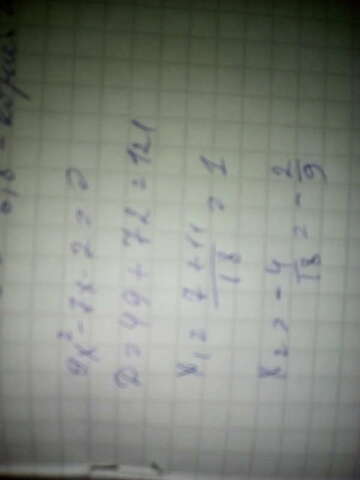 9x² - 7x - 2 = 0
D = 49 + 72 = 121
x₁ = (7 + 11)/18 = 1
x₂ = -4/18 = -2/9